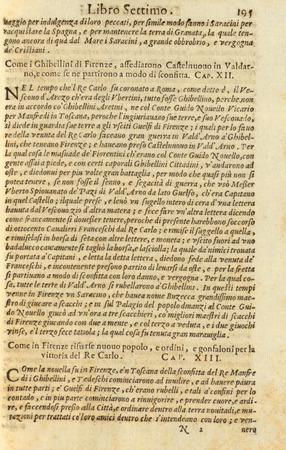 Libro Settimo. 195
uaggio per indulgenza di loro peccati, per simile modo fanno i Saracini per
racquistare la Spagna, e per mantenere la terra di Granata, la quale ten-
gono ancora di quà dal Mare i Saracini, a grande obbrobrio, e vergogna
de' Cristiani.
Come i Ghibellini di Firenze, assediarono Castelnuouo in Valdar-
no, e come se ne partirono a modo di sconfitta. CAP. XII.
NEL tempo che'l Re Carlo fu coronato a Roma, come detto è, il Ve-
scouo d'Arezo ch'era degli Vbertini, tutto fosse Ghibellino, perche non
era in accordo co' Ghibellini, Aretini, ne col Conte Guido Nouello Vicario
per Manfredi in Toscana, peroche l'ingiuriauano sue terre, e suo Vescouado,
si diede in guardia sue terre a gli vsciti Guelfi di Firenze; i quali per lo su-
bsidio della venuta del Re Carlo faceano gran guerra in Vald'Arno a' Ghibel-
lini, che teneano Firenze; e haueano preso Castelnuouo in Vald'Arno. Per
la qual cosa la masnade de' Fiorentini ch'era col Conte Guido Nouello, con
gente assai a piede, e con certi caporali Ghibellini Cittadini, v'andarono ad
oste, e diedonui per piu volte gran battaglia, per modo che quasi più non si
potea tenere, se non fosse il senno, e segacità di guerra, che vsò Messer
Vberto Spionando de' Pazi di Vald'Arno da lato Guelfo, ch'era Capitano
in quel Castello; il quale prese, e leuò vn sugello intero di cera d'vna lettera
hauuta dal Vescouo zio d'altra matera; e fece fare vn'altra lettera dicendo
come francamente si douesser tenere, peroche di presente harebbono soccorso
di ottocento Caualieri Franceschi dal Re Carlo; e rimise il suggello a quella,
e rimiselasi in borsa di seta con altre lettere, e moneta; e vscito fuori ad vno
badalucco ascaramente si tagliò la borsa, e lasciolla; la quale da' nimici trouata
fu portata a' Capitani, e letta la detta lettera, diedono fede alla venuta de'
Franceschi, e incontenente presono partito di leuarsi da oste, e per la fretta
si partirono a modo di sconfitta con loro danno, e vergogna. Per la qual co-
sa, tutte le terre di Vald'Arno si rubellarono a' Ghibellini. In questi tempi
venne in Firenze vn Saracino, che hauea nome Buzecca grandissimo mae-
stro di giucare a scacchi; e in sul Palagio del popolo dinanzi al Conte Gui-
do Nouello giucò ad vn'ora a tre scacchieri, co migliori maestri di scacchi
di Firenze giucando con due a mente, e col terzo a veduta, e i due giuochi
vinse, e'l terzo fece tauola; la qual cosa fu tenuta gran marauiglia.
Come in Firenze risurse nuouo popolo, e ordini, e gonfaloni per la
vittoria del Re Carlo. CAP. XIII.
COme la nouella fu in Firenze, e'n Toscana della sconfitta del Re Manfre-
di i Ghibellini, e Tedeschi cominciarono ad inuilire, e ad hauere paura
in tutte parti; e' Guelfi di Firenze, ch'erano rubelli, e tali a' confini per lo
contado, e in piu parte cominciarono a rinuigorire, e prender cuore, e ardi-
re, e faccendosi presso alla Città, e ordinare dentro alla terra nouitadi, e mu-
tazioni per trattati co' loro amici dentro che s'intendeano con loro; e ven-
N 2 nero